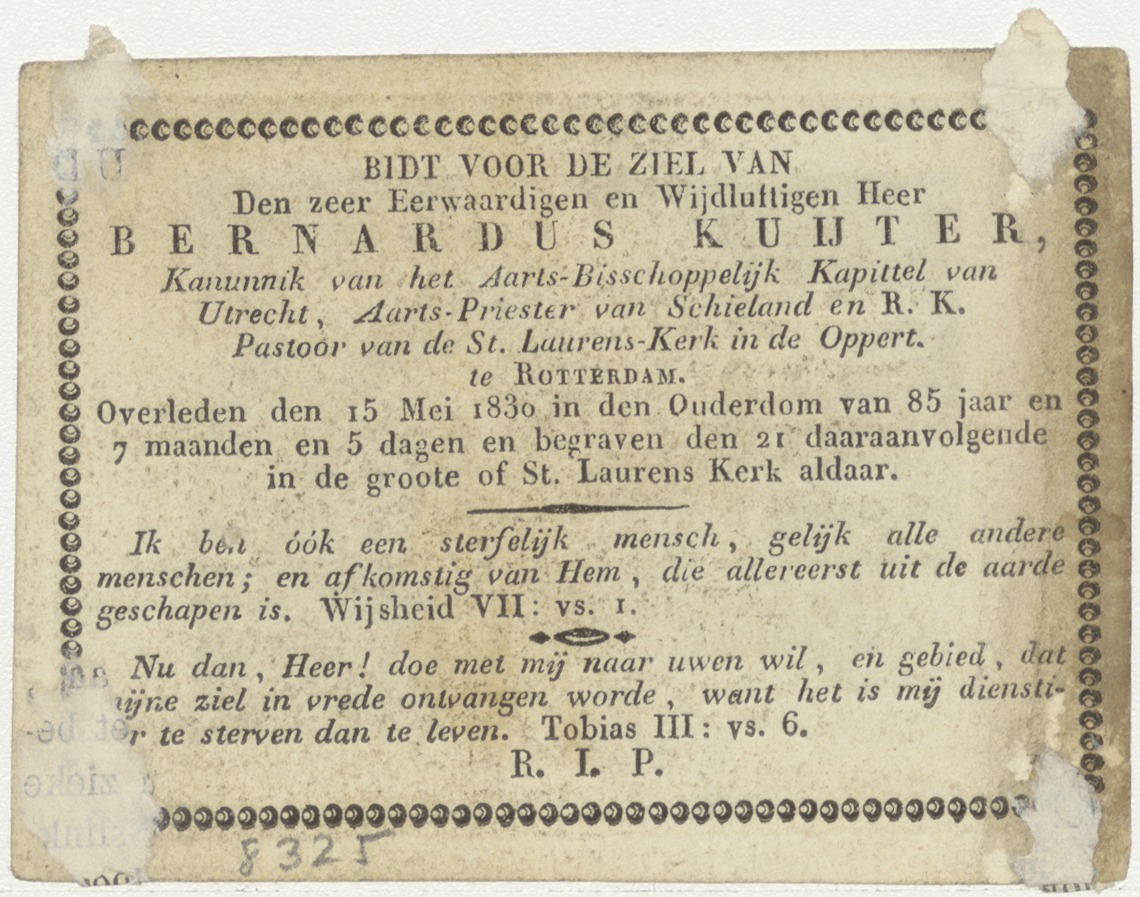 BIDT VOOR DE ZIEL VAN
Den zeer Eerwaardigen en Wijdluftigen Heer
BERNARDUS KUIJTER,
Kanunnik van het Aarts-Bisschoppelijk Kapittel van
Utrecht, Aarts-Priester van Schieland en R. K.
Pastoor van de St. Laurens-Kerk in de Oppert.
te ROTTERDAM.
Overleden den 15 Mei 1830 in den Ouderdom van 85 jaar en
7 maanden en 5 dagen en begraven den 21 daaraanvolgende
in de groote of St. Laurens Kerk aldaar.
Ik ben óók een sterfelijk mensch, gelijk alle andere
menschen; en afkomstig van Hem, die allereerst uit de aarde
geschapen is. Wijsheid VII: vs. 1.
Nu dan, Heer! doe met mij naar uwen wil, en gebied, dat
ziel in vrede ontvangen worde, want het is mij diensti-
te sterven dan te leven. Tobias III: vs. 6.
R. I. P.
8325